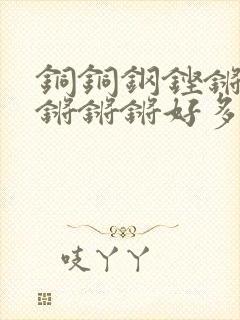 銅銅鋼鏗鏘
鏘鏘鏘好多
吱丫丫